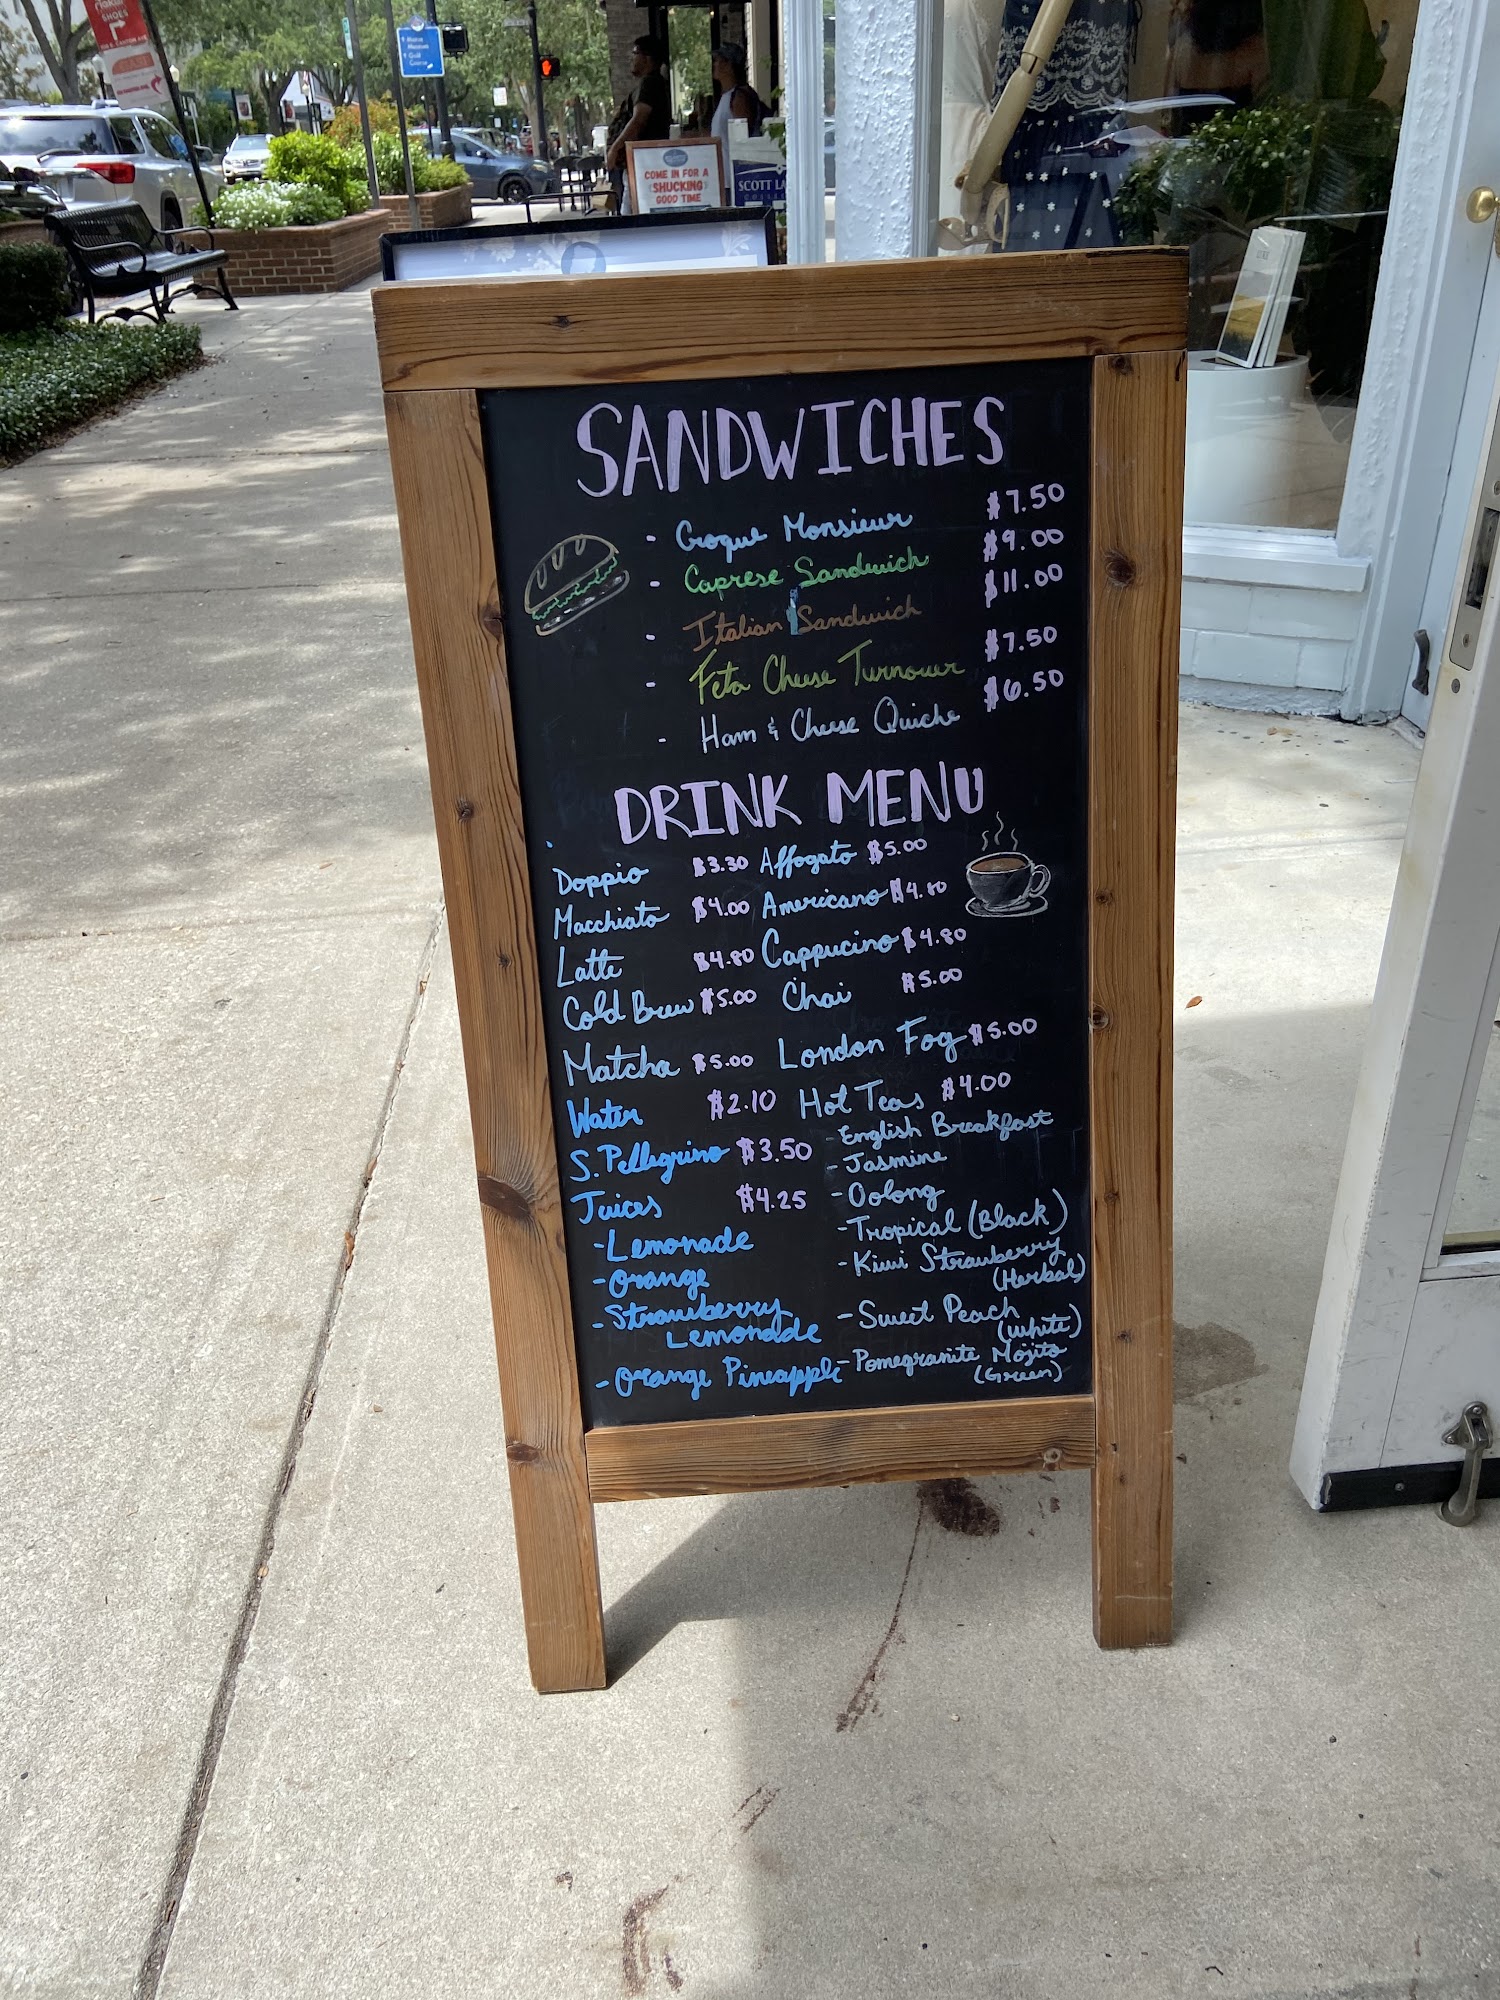 SHOES
COME IN FOR A
"SHUCKING"
GOOD TIME
SCOTT LA
SANDWICHES
- Croque Monsieur $7.50
- Caprese Sandwich $9.00
- Italian Sandwich $11.00
- Feta Cheese Turnover $7.50
- Ham & Cheese Quiche $6.50
DRINK MENU
Doppio $3.30 Affogato $5.00
Macchiato $4.00 Americano $4.80
Latte $4.80 Cappucino $4.80
Cold Brew $5.00 Chai $5.00
Matcha $5.00 London Fog $5.00
Water $2.10 Hot Teas $4.00
- English Breakfast
S. Pellegrino $3.50
- Jasmine
Juices $4.25
- Oolong
- Lemonade
- Tropical (Black)
- Orange
- Kiwi Strawberry
(Herbal)
- Strawberry
Lemonade
- Sweet Peach
(White)
- Orange Pineapple
- Pomegranite Mojito
(Green)